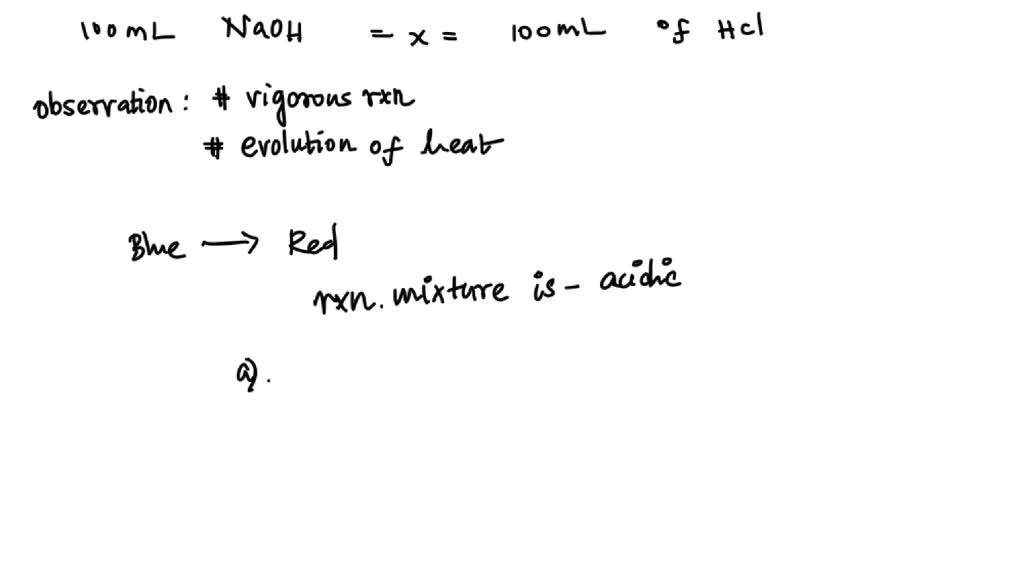 100mL NaOH = x = 100mL of HCl
observation: # vigorous rxn
# evolution of heat
Blue → Red
rxn. mixture is - acidic
a).